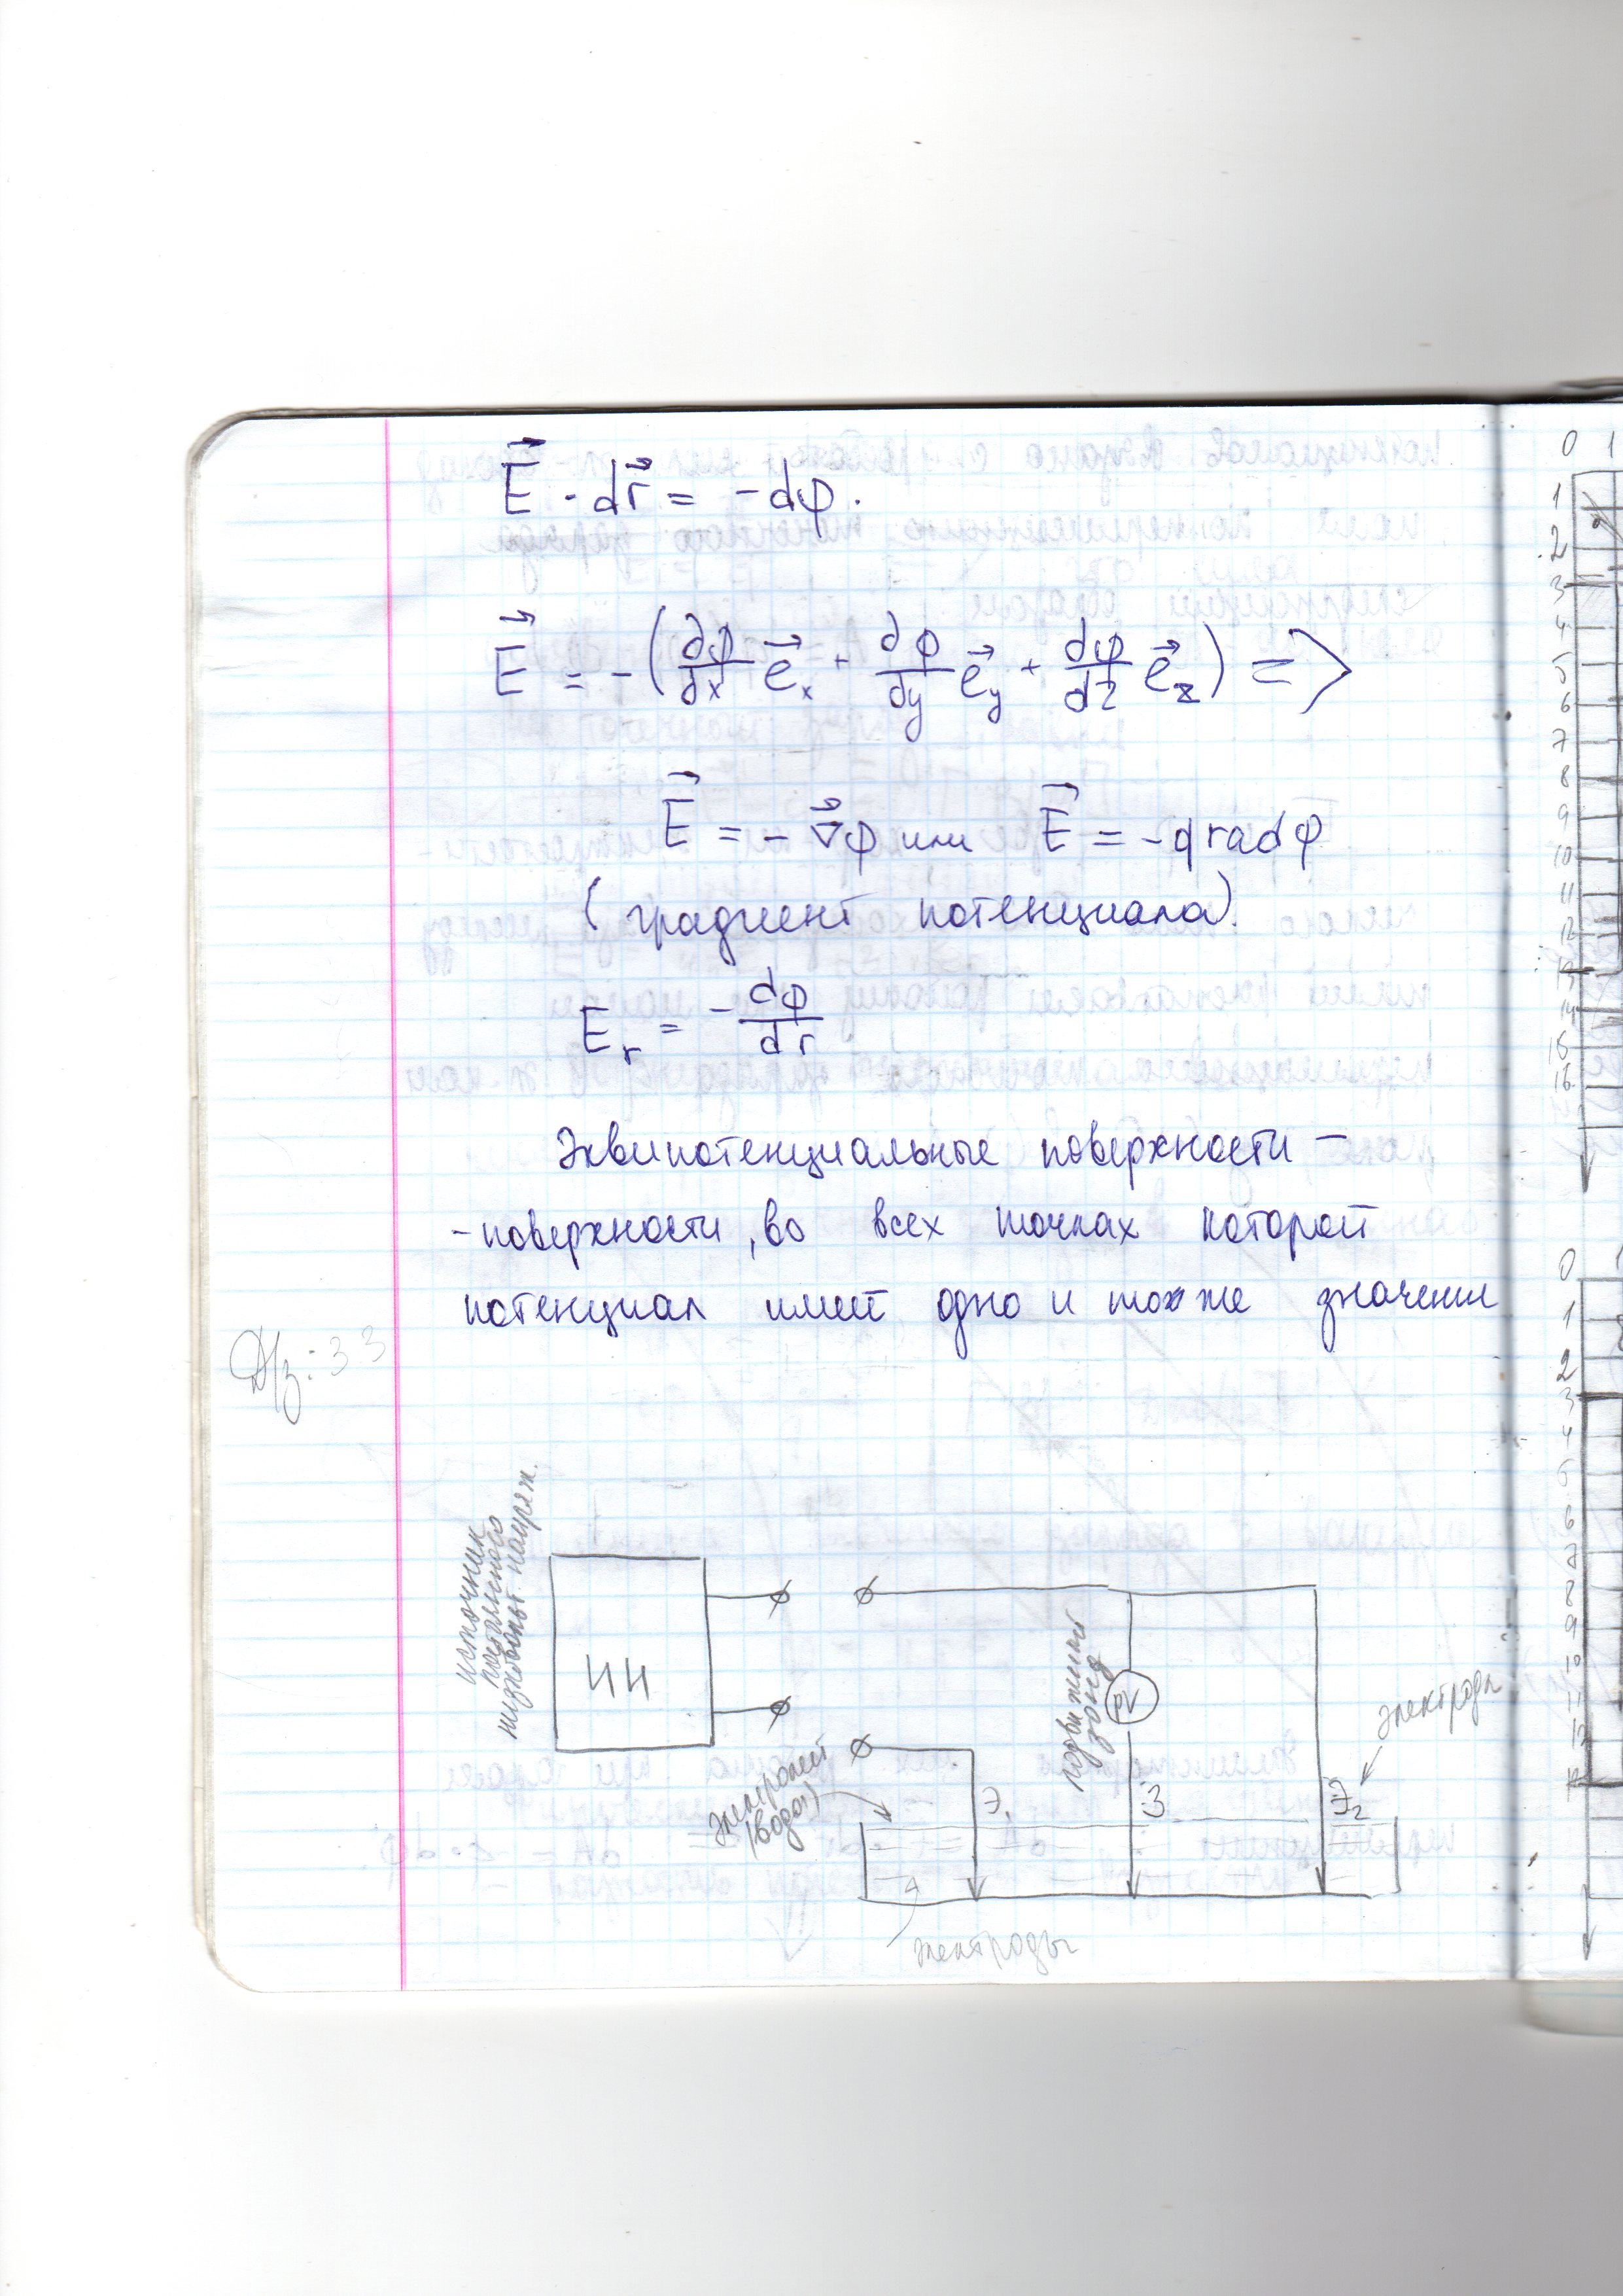 E⃗ · dr⃗ = -dφ.
E⃗ = -(∂φ/∂x e⃗x + ∂φ/∂y e⃗y + dφ/dz e⃗z) =>
E⃗ = - ∇⃗φ или E⃗ = -qradφ
(градиент потенциала).
Er = -dφ/dr
Эквипотенциальные поверхности -
-поверхности, во всех точках которой
потенциал имеет одно и тоже значение
Д/з: 33
источник
постоянного
низковольт. напряж.
ИН
подвижный
зонд
PV
электроды
электролит
(вода)
Э1
З
Э2
электроды
0 1
1
2
3
4
5
6
7
8
9
10
11
12
13
14
15
16
0
1
2
3
4
5
6
7
8
9
10
11
12